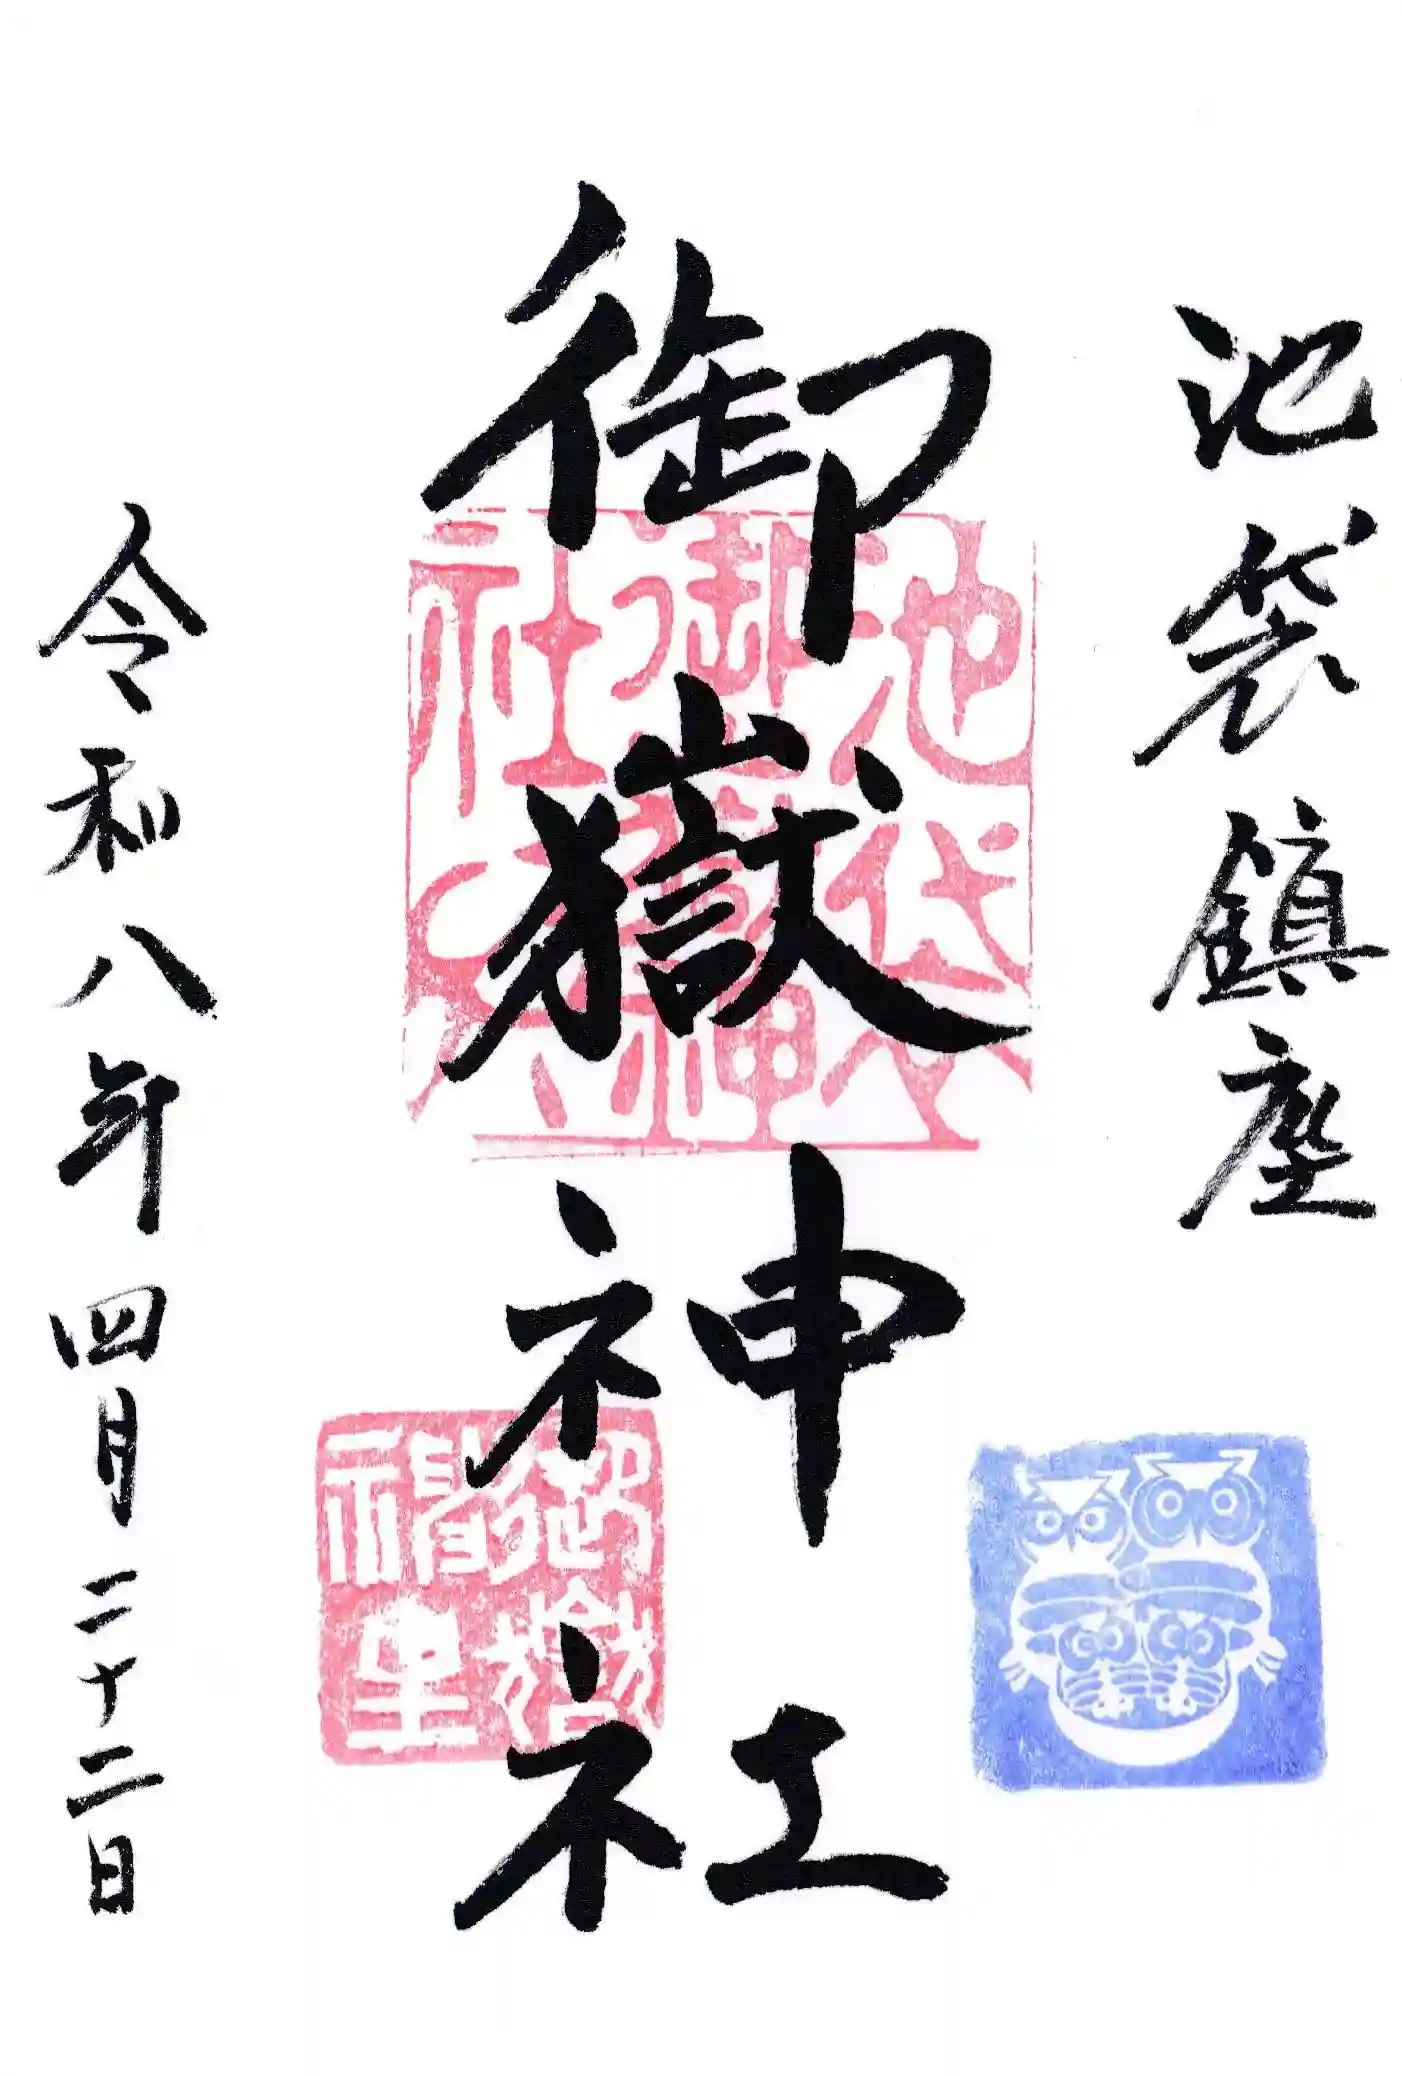 池袋鎮座
御嶽神社
令和八年四月二十二日
池袋
御嶽神
社